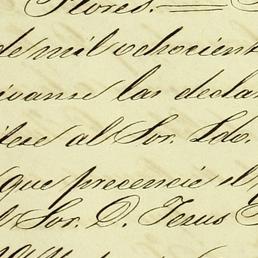 Flores.
de mil ochocient
ivanse las decla
tese al Sor. Ldo.
que precencie el
l Sor. D. Jesus